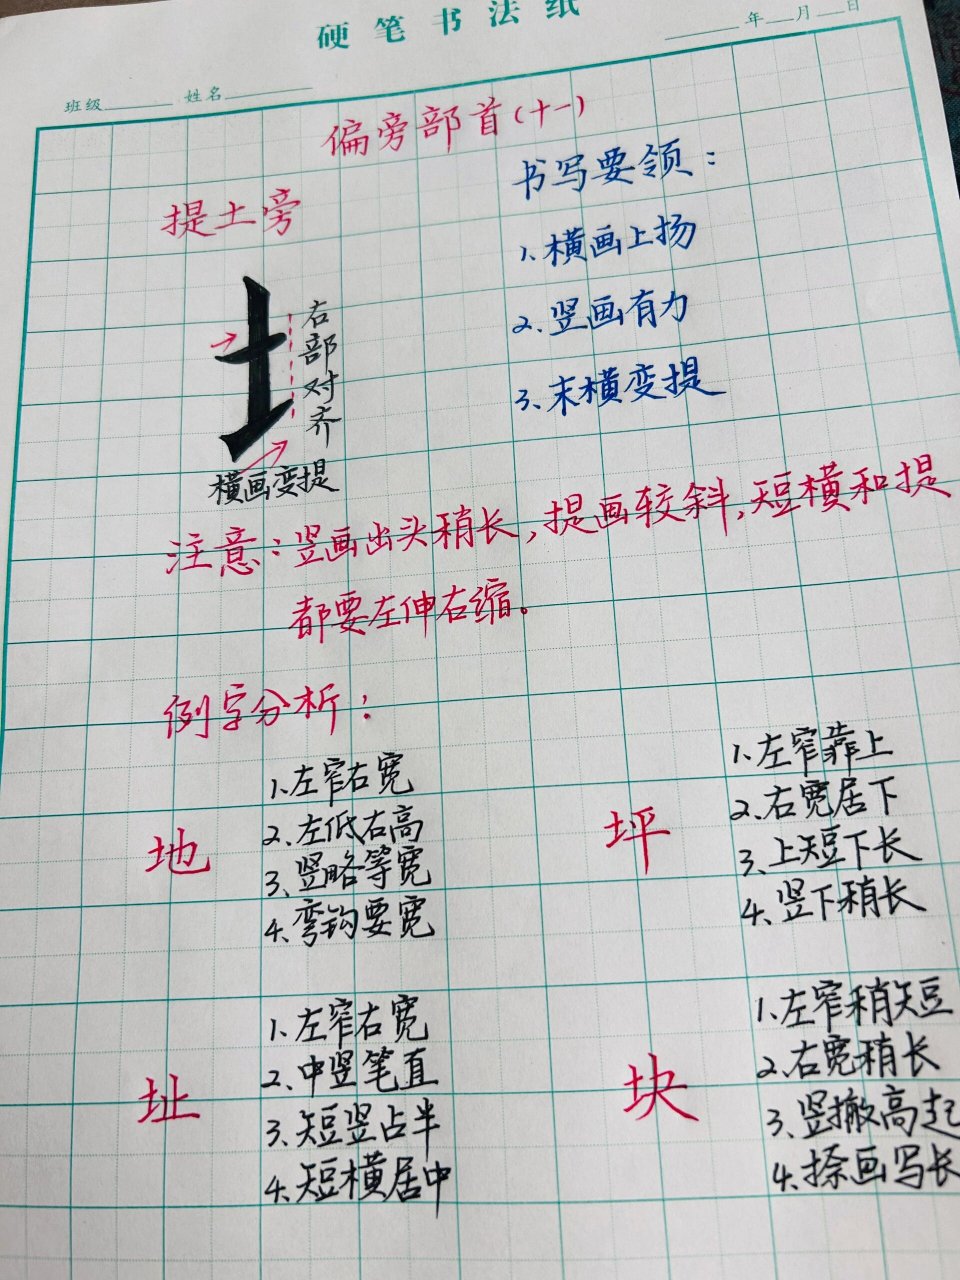 硬笔书法纸
班级 姓名 年 月 日
偏旁部首(十一)
提土旁
右部对齐
横画变提
书写要领:
1.横画上扬
2.竖画有力
3.末横变提
注意:竖画出头稍长,提画较斜,短横和提
都要左伸右缩。
例字分析:
地
1.左窄右宽
2.左低右高
3.竖略等宽
4.弯钩要宽
坪
1.左窄靠上
2.右宽居下
3.上短下长
4.竖下稍长
址
1.左窄右宽
2.中竖笔直
3.短竖占半
4.短横居中
块
1.左窄稍短
2.右宽稍长
3.竖撇高起
4.捺画写长